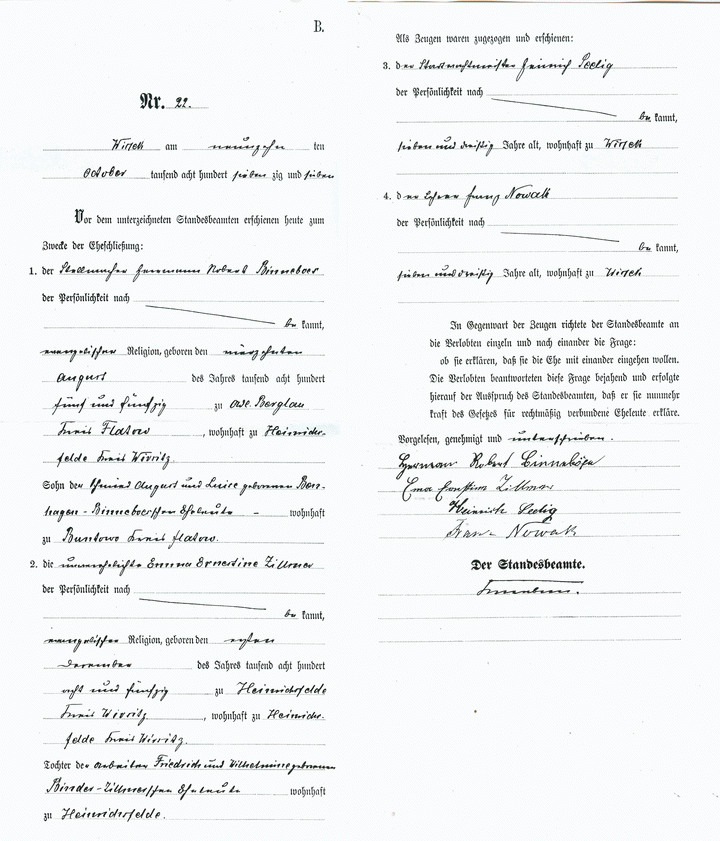 B.
Nr. 22.
Wirsek am neunzehn ten
October tausend acht hundert sieben zig und sieben
Vor dem unterzeichneten Standesbeamten erschienen heute zum
Zwecke der Eheschließung:
1. der Stellmacher Herrmann Robert Binneboes
der Persönlichkeit nach
be kannt,
evangelischer Religion, geboren den vierzehnten
August des Jahres tausend acht hundert
fünf und fünfzig zu Adl.
Kreis Flatow, wohnhaft zu Heinrichs-
felde Kreis Wirsitz.
Sohn der Schmied August und Luise geborenen Bon-
hagen-Binneboesschen Eheleute - wohnhaft
zu Buntowo Kreis Flatow.
2. die unverehelichte Emma Ernestine Zillmer
der Persönlichkeit nach
be kannt,
evangelischer Religion, geboren den ersten
December des Jahres tausend acht hundert
acht und fünfzig zu Heinrichsfelde
Kreis Wirsitz, wohnhaft zu Heinrichs-
felde Kreis Wirsitz.
Tochter der Arbeiter Friedrich und Wilhelmine geborenen
Binder-Zillmerschen Eheleute wohnhaft
zu Heinrichsfelde.
Als Zeugen waren zugezogen und erschienen:
3. der Stadtwachtmeister Heinrich Seelig
der Persönlichkeit nach
be kannt,
sieben und dreißig Jahre alt, wohnhaft zu Wirsek
4. der Lehrer Franz Nowak
der Persönlichkeit nach
be kannt,
sieben und dreißig Jahre alt, wohnhaft zu Wirsek
In Gegenwart der Zeugen richtete der Standesbeamte an
die Verlobten einzeln und nach einander die Frage:
ob sie erklären, daß sie die Ehe mit einander eingehen wollen.
Die Verlobten beantworteten diese Frage bejahend und erfolgte
hierauf der Ausspruch des Standesbeamten, daß er sie nunmehr
kraft des Gesetzes für rechtmäßig verbundene Eheleute erkläre.
Vorgelesen, genehmigt und unterschrieben.
Herman Robert
Ema Ernestine Zillmer
Heinrich Seelig
Franz Nowak
Der Standesbeamte.